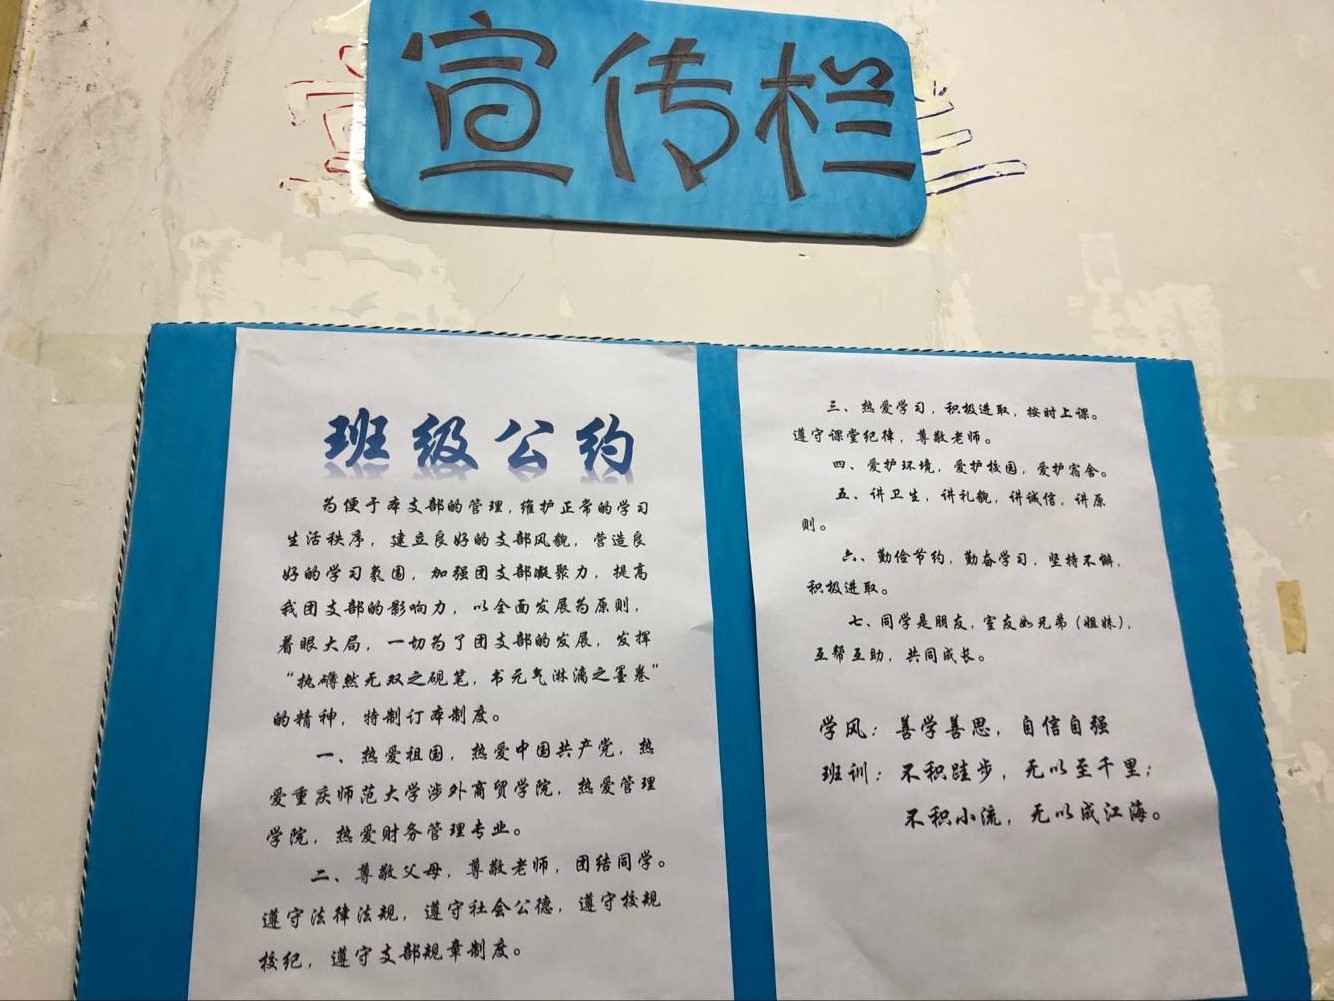 宣传栏
班级公约
为便于本支部的管理,维护正常的学习
生活秩序,建立良好的支部风貌,营造良
好的学习氛围,加强团支部凝聚力,提高
我团支部的影响力,以全面发展为原则,
着眼大局,一切为了团支部的发展,发挥
“执礴然无双之砚笔,书元气淋漓之墨卷”
的精神,特制订本制度。
一、热爱祖国,热爱中国共产党,热
爱重庆师范大学涉外商贸学院,热爱管理
学院,热爱财务管理专业。
二、尊敬父母,尊敬老师,团结同学。
遵守法律法规,遵守社会公德,遵守校规
校纪,遵守支部规章制度。
三、热爱学习,积极进取,按时上课。
遵守课堂纪律,尊敬老师。
四、爱护环境,爱护校园,爱护宿舍。
五、讲卫生,讲礼貌,讲诚信,讲原
则。
六、勤俭节约,勤奋学习,坚持不懈,
积极进取。
七、同学是朋友,室友如兄弟(姐妹),
互帮互助,共同成长。
学风:善学善思,自信自强
班训:不积跬步,无以至千里;
不积小流,无以成江海。